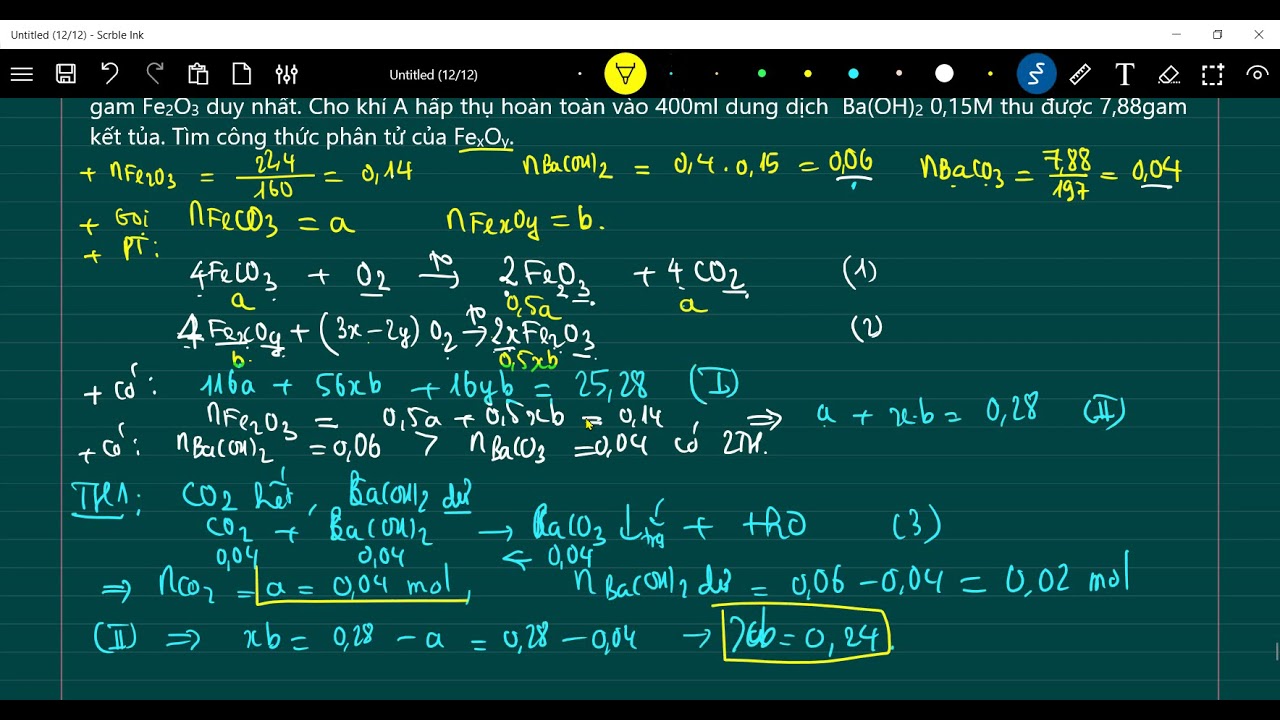 Untitled (12/12) - Scrble Ink
Untitled (12/12)
T
gam Fe₂O₃ duy nhất. Cho khí A hấp thụ hoàn toàn vào 400ml dung dịch Ba(OH)₂ 0,15M thu được 7,88gam
kết tủa. Tìm công thức phân tử của FeₓOᵧ.
+ nFe₂O₃ = 22,4/160 = 0,14 nBa(OH)₂ = 0,4 . 0,15 = 0,06 nBaCO₃ = 7,88/197 = 0,04
+ Gọi nFeCO₃ = a nFexOy = b.
+ PT:
4FeCO₃ + O₂ →(t°) 2Fe₂O₃ + 4CO₂ (1)
a 0,5a a
4FexOy + (3x-2y) O₂ →(t°) 2xFe₂O₃ (2)
b 0,5xb
+ Có: 116a + 56xb + 16yb = 25,28 (I)
nFe₂O₃ = 0,5a + 0,5xb = 0,14 ⇒ a + x.b = 0,28 (II)
+ Có: nBa(OH)₂ = 0,06 > nBaCO₃ = 0,04 có 2TH.
TH1: CO₂ hết, Ba(OH)₂ dư
CO₂ + Ba(OH)₂ → BaCO₃ ↓ + H₂O (3)
0,04 0,04 ← 0,04
⇒ nCO₂ = a = 0,04 mol, nBa(OH)₂ dư = 0,06 - 0,04 = 0,02 mol
(II) ⇒ xb = 0,28 - a = 0,28 - 0,04 → xb = 0,24.